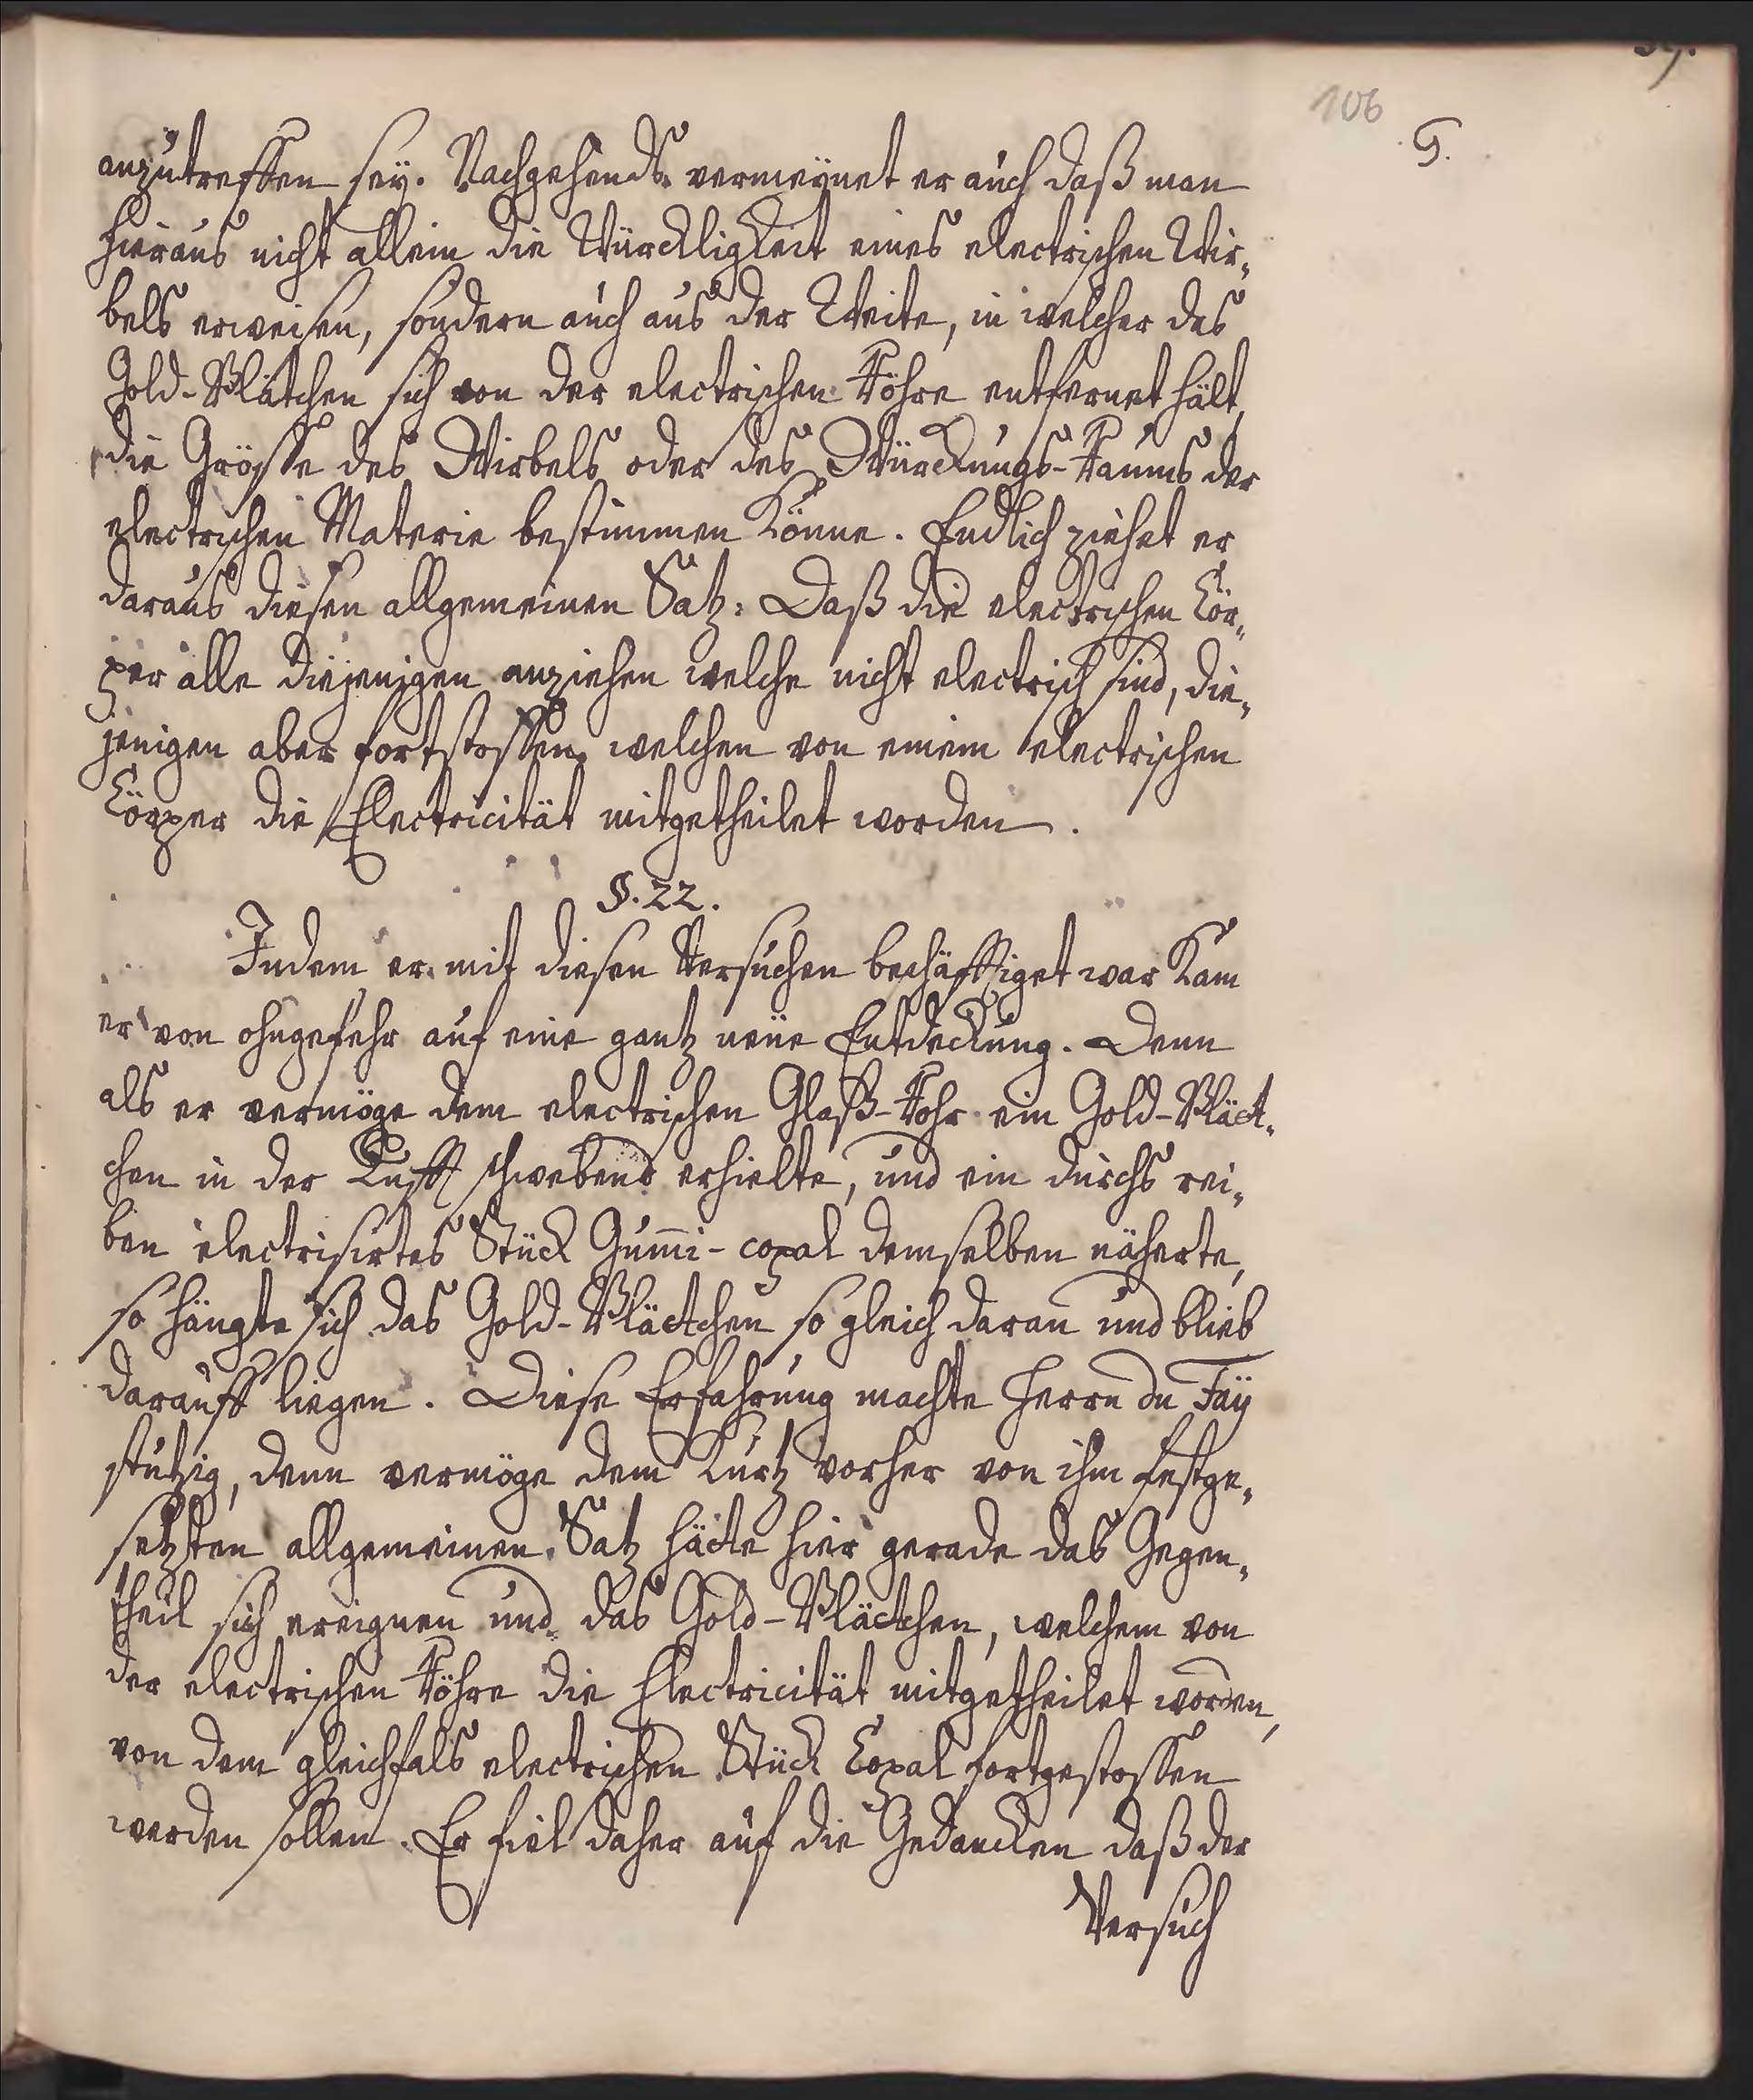 106
G.
anzutreffen sey. Nachgehends vermeynet er auch daß man
hieraus nicht allein die Würckligkeit eines electrischen Wir„
bels erweisen, sondern auch aus der Weite, in welcher das
Gold-Blätchen sich von der electrischen Röhre entfernet hält,
die Grösse des Wirbels oder des Würckungs-Raums der
electrischen Materie bestimmen könne. Endlich ziehet er
daraus diesen allgemeinen Satz: Daß die electrischen Cör„
per alle diejenigen anziehen welche nicht electrisch sind, die„
jenigen aber fortstossen, welchen von einem electrischen
Cörper die Electricität mitgetheilet worden.
§. 22.
Indem er mit diesen Versuchen beschäfftiget war kam
er von ohngefehr auf eine gantz neüe Entdeckung. Denn
als er vermöge dem electrischen Glaß-Rohr ein Gold-Blätt„
chen in der Lufft schwebend erhielte, und ein durchs rei„
ben electrisirtes Stück Gum̅i-copal demselben näherte,
so hängte sich das Gold-Blättchen so gleich daran und blieb
darauff liegen. Diese Erfahrung machte Herrn du Faÿ
stutzig, denn vermöge dem kurtz vorher von ihm festge„
setzten allgemeinen Satz hätte hier gerade das Gegen„
theil sich ereignen und das Gold-Blättchen, welchem von
der electrischen Röhre die Electricität mitgetheilet worden,
von dem gleichfals electrischen Stück Copal fortgestossen
werden sollen. Er fiel daher auf die Gedancken daß der
Versuch